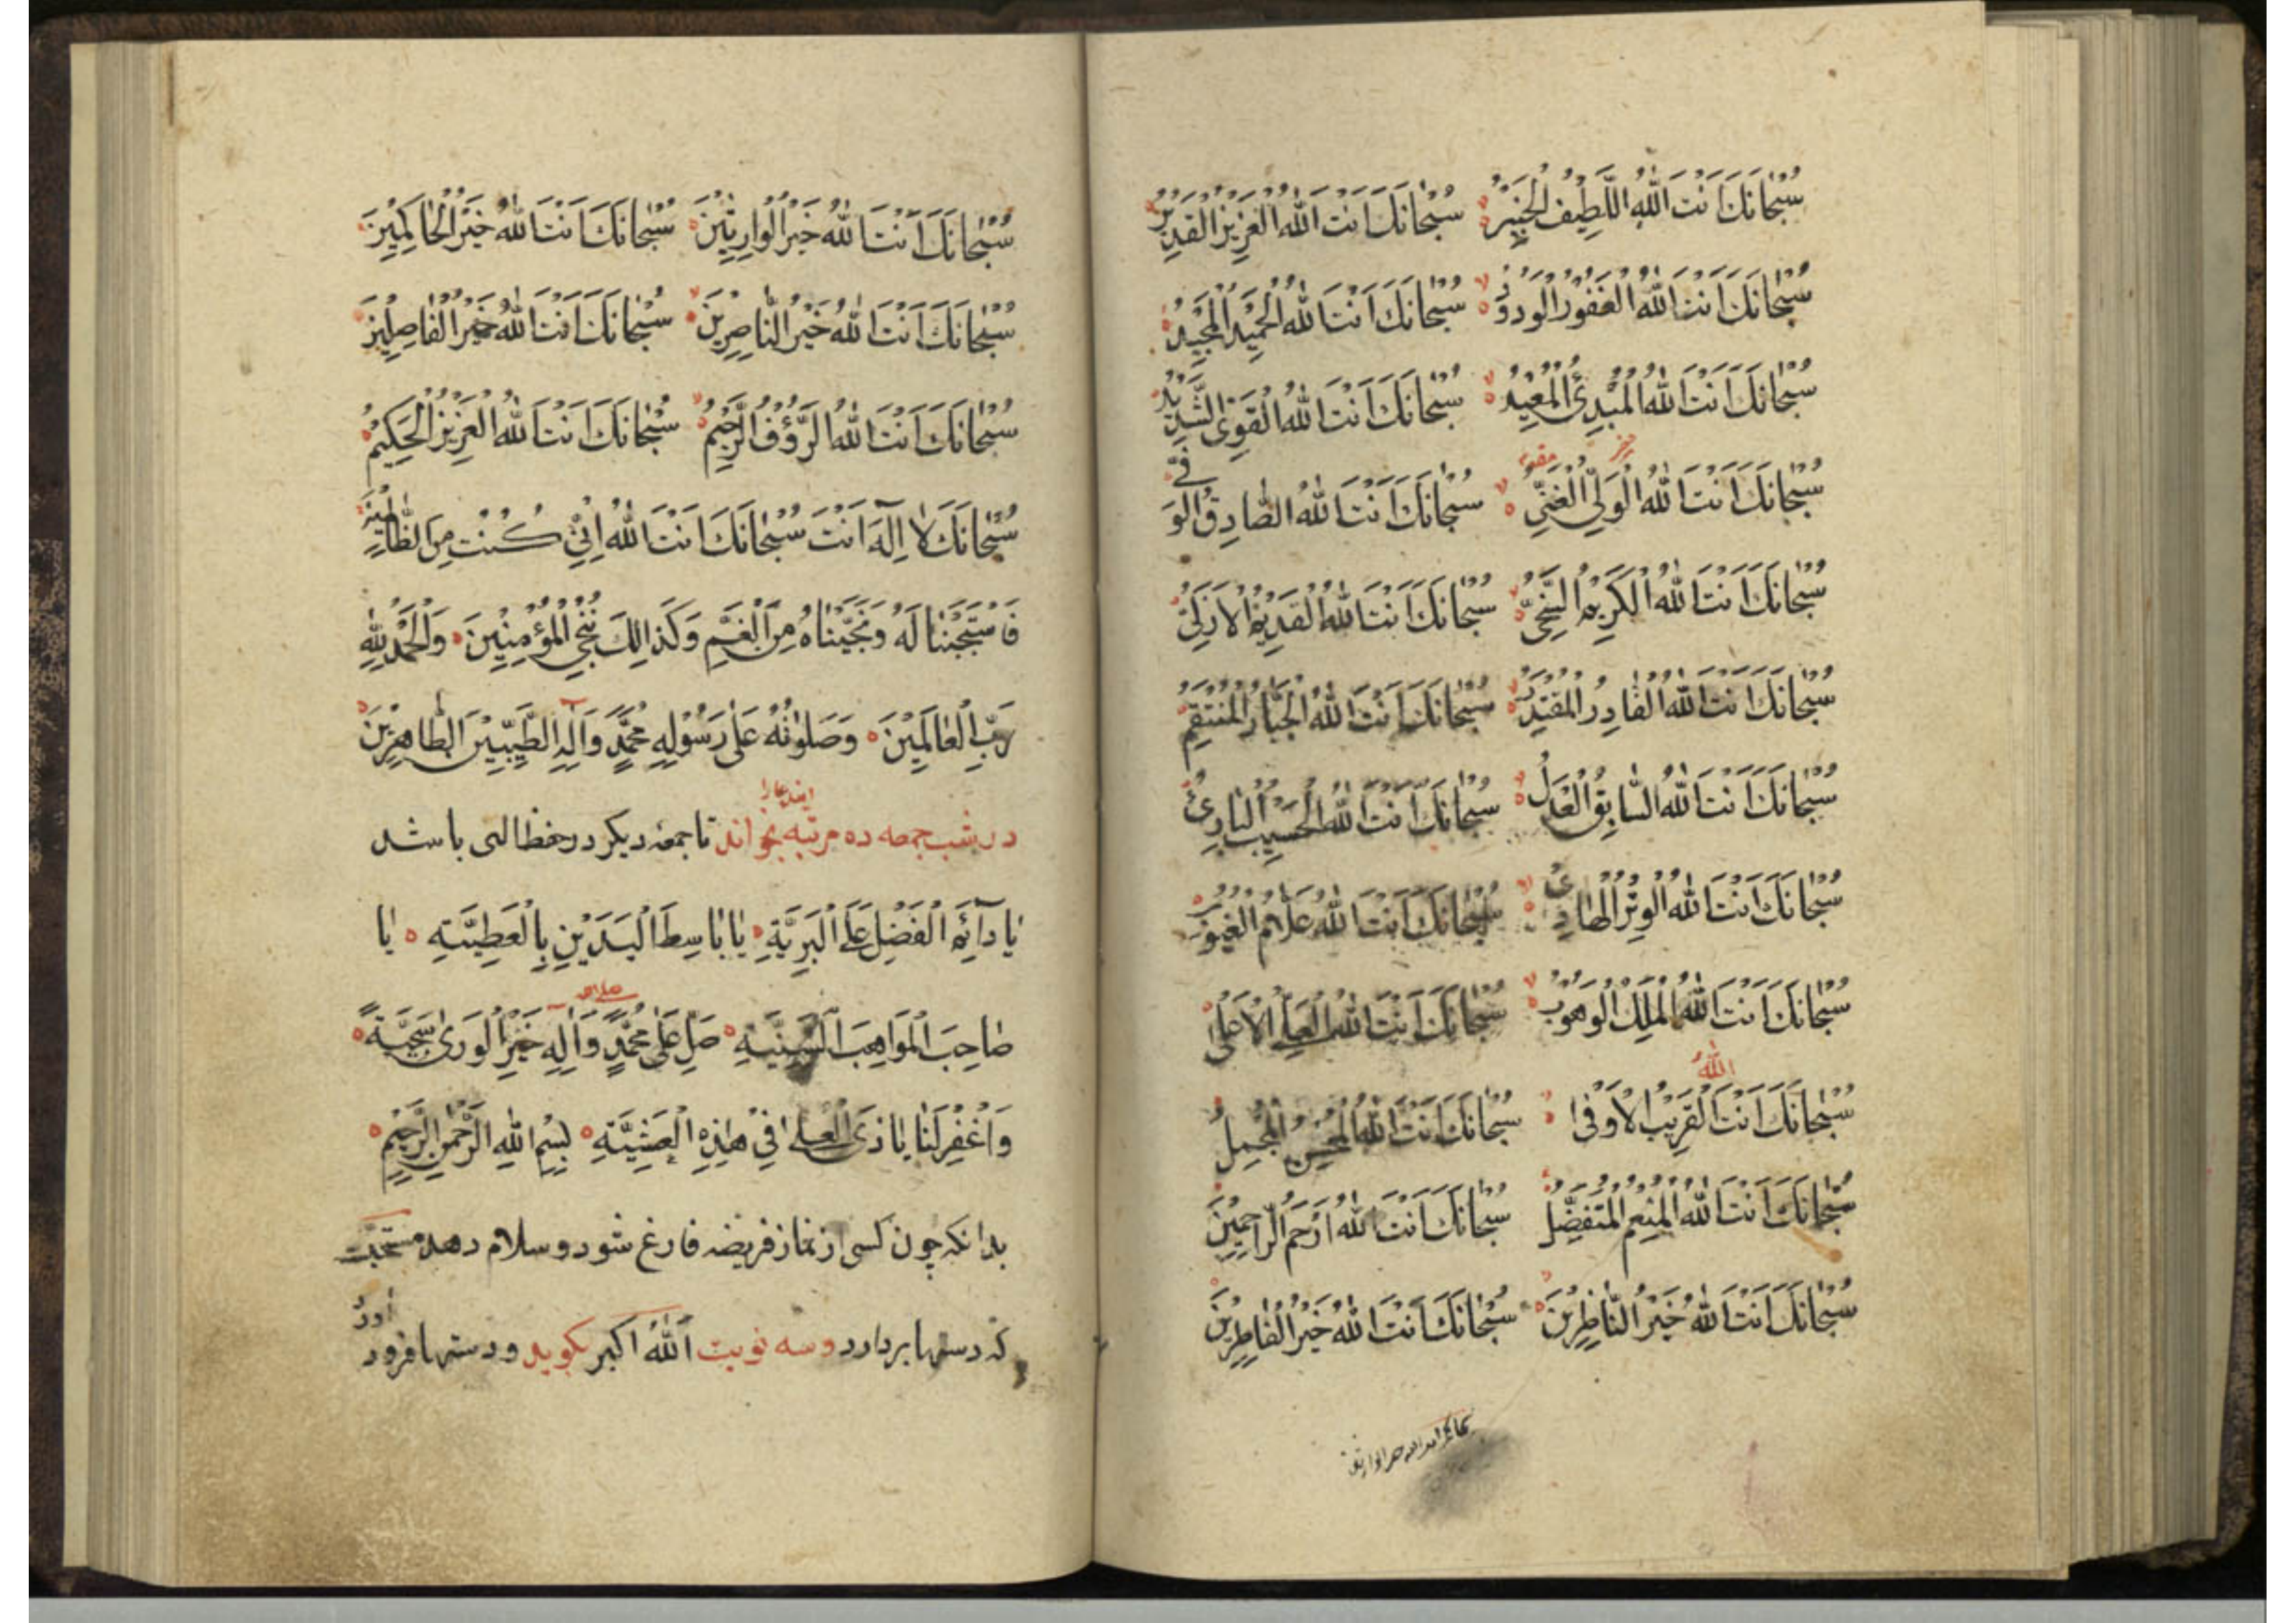 سُبْحَانَكَ اَنْتَ اللّٰهُ اللَّطِيفُ الْخَبِيْرُ سُبْحَانَكَ اَنْتَ اللّٰهُ الْعَزِيزُ الْقَدِيْرُ
سُبْحَانَكَ اَنْتَ اللّٰهُ الْغَفُوْرُ الْوَدُوْدُ سُبْحَانَكَ اَنْتَ اللّٰهُ الْحَمِيْدُ الْمَجِيْدُ
سُبْحَانَكَ اَنْتَ اللّٰهُ الْمُبْدِئُ الْمُعِيْدُ سُبْحَانَكَ اَنْتَ اللّٰهُ الْقَوِىُّ الشَّدِيْدُ
سُبْحَانَكَ اَنْتَ اللّٰهُ الْوَلِىُّ الْغَنِىُّ سُبْحَانَكَ اَنْتَ اللّٰهُ الصَّادِقُ الْوَفِىُّ
سُبْحَانَكَ اَنْتَ اللّٰهُ الْكَرِيْمُ السَّخِىُّ سُبْحَانَكَ اَنْتَ اللّٰهُ الْقَدِيْمُ الْاَزَلِىُّ
سُبْحَانَكَ اَنْتَ اللّٰهُ الْقَادِرُ الْمُقْتَدِرُ سُبْحَانَكَ اَنْتَ اللّٰهُ الْجَبَّارُ الْمُنْتَقِمُ
سُبْحَانَكَ اَنْتَ اللّٰهُ السَّابِقُ الْعَدْلُ سُبْحَانَكَ اَنْتَ اللّٰهُ الْحَسِيْبُ الْبَارِئُ
سُبْحَانَكَ اَنْتَ اللّٰهُ الْوِتْرُ الْهَادِىُ سُبْحَانَكَ اَنْتَ اللّٰهُ عَلَّامُ الْغُيُوْبِ
سُبْحَانَكَ اَنْتَ اللّٰهُ الْمَلِكُ الْوَهُوْبُ سُبْحَانَكَ اَنْتَ اللّٰهُ الْعَلِىُّ الْاَعْلٰى
اللّٰهُ
سُبْحَانَكَ اَنْتَ الْقَرِيْبُ الْاَوْفٰى سُبْحَانَكَ اَنْتَ اللّٰهُ الْمُحْسِنُ الْمُجْمِلُ
سُبْحَانَكَ اَنْتَ اللّٰهُ الْمُنْعِمُ الْمُتَفَضِّلُ سُبْحَانَكَ اَنْتَ اللّٰهُ اَرْحَمُ الرَّاحِمِيْنَ
سُبْحَانَكَ اَنْتَ اللّٰهُ خَيْرُ النَّاظِرِيْنَ سُبْحَانَكَ اَنْتَ اللّٰهُ خَيْرُ الْفَاطِرِيْنَ
سُبْحَانَكَ اَنْتَ اللّٰهُ خَيْرُ الْوَارِثِيْنَ سُبْحَانَكَ اَنْتَ اللّٰهُ خَيْرُ الْحَاكِمِيْنَ
سُبْحَانَكَ اَنْتَ اللّٰهُ خَيْرُ النَّاصِرِيْنَ سُبْحَانَكَ اَنْتَ اللّٰهُ خَيْرُ الْفَاصِلِيْنَ
سُبْحَانَكَ اَنْتَ اللّٰهُ الرَّؤُفُ الرَّحِيْمُ سُبْحَانَكَ اَنْتَ اللّٰهُ الْعَزِيْزُ الْحَكِيْمُ
سُبْحَانَكَ لَا اِلٰهَ اَنْتَ سُبْحَانَكَ اَنْتَ اللّٰهُ اِنِّىْ كُنْتُ مِنَ الظَّالِمِيْنَ
فَاسْتَجَبْنَا لَهُ وَنَجَّيْنَاهُ مِنَ الْغَمِّ وَكَذَالِكَ نُنْجِى الْمُؤْمِنِيْنَ وَالْحَمْدُ لِلّٰهِ
رَبِّ الْعَالَمِيْنَ وَصَلٰوتُهُ عَلٰى رَسُوْلِهِ مُحَمَّدٍ وَاٰلِهِ الطَّيِّبِيْنَ الطَّاهِرِيْنَ
ایندعارا
در شب جمعه ده مرتبه بخواند تا جمعهٔ دیکر در حفظ الهی باشد
يَا دَآئِمَ الْفَضْلِ عَلَى الْبَرِيَّةِ يَا بَاسِطَ الْيَدَيْنِ بِالْعَطِيَّةِ يَا
صَاحِبَ الْمَوَاهِبِ السَّنِيَّةِ صَلِّ عَلٰى مُحَمَّدٍ وَاٰلِهِ خَيْرِ الْوَرٰى سَجِيَّةً
وَاغْفِرْلَنَا يَا ذَى الْعُلٰى فِىْ هٰذِهِ الْعَشِيَّةِ بِسْمِ اللّٰهِ الرَّحْمٰنِ الرَّحِيْمِ
بدانکه چون کسی از نماز فریضه فارغ شود و سلام دهد مستحبّت
که دستها بردارد و سه نوبت اَللّٰهُ اکبر بکوید و دستها فرود اورد